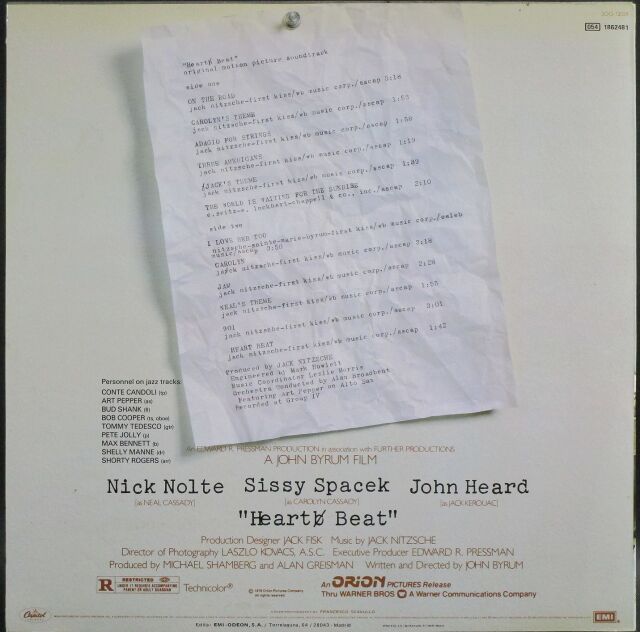 SOO-12029
054 1862481
"Heartb Beat"
original motion picture soundtrack
side one
ON THE ROAD
jack nitzsche-first kiss/wb music corp./ascap 3:18
CAROLYN'S THEME
jack nitzsche-first kiss/wb music corp./ascap 1:53
ADAGIO FOR STRINGS
jack nitzsche-first kiss/wb music corp./ascap 1:50
THREE AMERICANS
jack nitzsche-first kiss/wb music corp./ascap 1:19
/JACK'S THEME
jack nitzsche-first kiss/wb music corp./ascap
THE WORLD IS WAITING FOR THE SUNRISE
e.seitz-e. lockhart-chappell & co., inc./ascap 2:10
side two
I LOVE HER TOO
nitzsche-sainte-marie-byrum-first kiss/wb music corp./caleb
music/ascap 3:50
CAROLYN
jack nitzsche-first kiss/wb music corp./ascap 3:18
JAM
jack nitzsche-first kiss/wb music corp./ascap 2:28
NEAL'S THEME
jack nitzsche-first kiss/wb music corp./ascap
901
jack nitzsche-first kiss/wb music corp./ascap 3:01
HEART BEAT
jack nitzsche-first kiss/wb music corp./ascap 1:42
Produced by JACK NITZSCHE
Engineered by Mark Howlett
Music Coordinator Leslie Morris
Orchestra Conducted by Alan Broadbent
Featuring Art Pepper on Alto Sax
Recorded at Group IV
Personnel on jazz tracks:
CONTE CANDOLI (tp)
ART PEPPER (as)
BUD SHANK (fl)
BOB COOPER (ts, oboe)
TOMMY TEDESCO (gtr)
PETE JOLLY (p)
MAX BENNETT (b)
SHELLY MANNE (dr)
SHORTY ROGERS (arr)
An EDWARD R. PRESSMAN PRODUCTION in association with FURTHER PRODUCTIONS
A JOHN BYRUM FILM
Nick Nolte Sissy Spacek John Heard
[as NEAL CASSADY] [as CAROLYN CASSADY] [as JACK KEROUAC]
"Heartb Beat"
Production Designer JACK FISK Music by JACK NITZSCHE
Director of Photography LASZLO KOVACS, A.S.C. Executive Producer EDWARD R. PRESSMAN
Produced by MICHAEL SHAMBERG and ALAN GREISMAN Written and Directed by JOHN BYRUM
R RESTRICTED
UNDER 17 REQUIRES ACCOMPANYING
PARENT OR ADULT GUARDIAN
Technicolor®
© 1979 Orion Pictures Company
All rights reserved.
An ORION PICTURES Release
Thru WARNER BROS A Warner Communications Company
Capitol
EMI
Edita: EMI-ODEON, S.A. / Torrelaguna, 64 / 28043 - Madrid